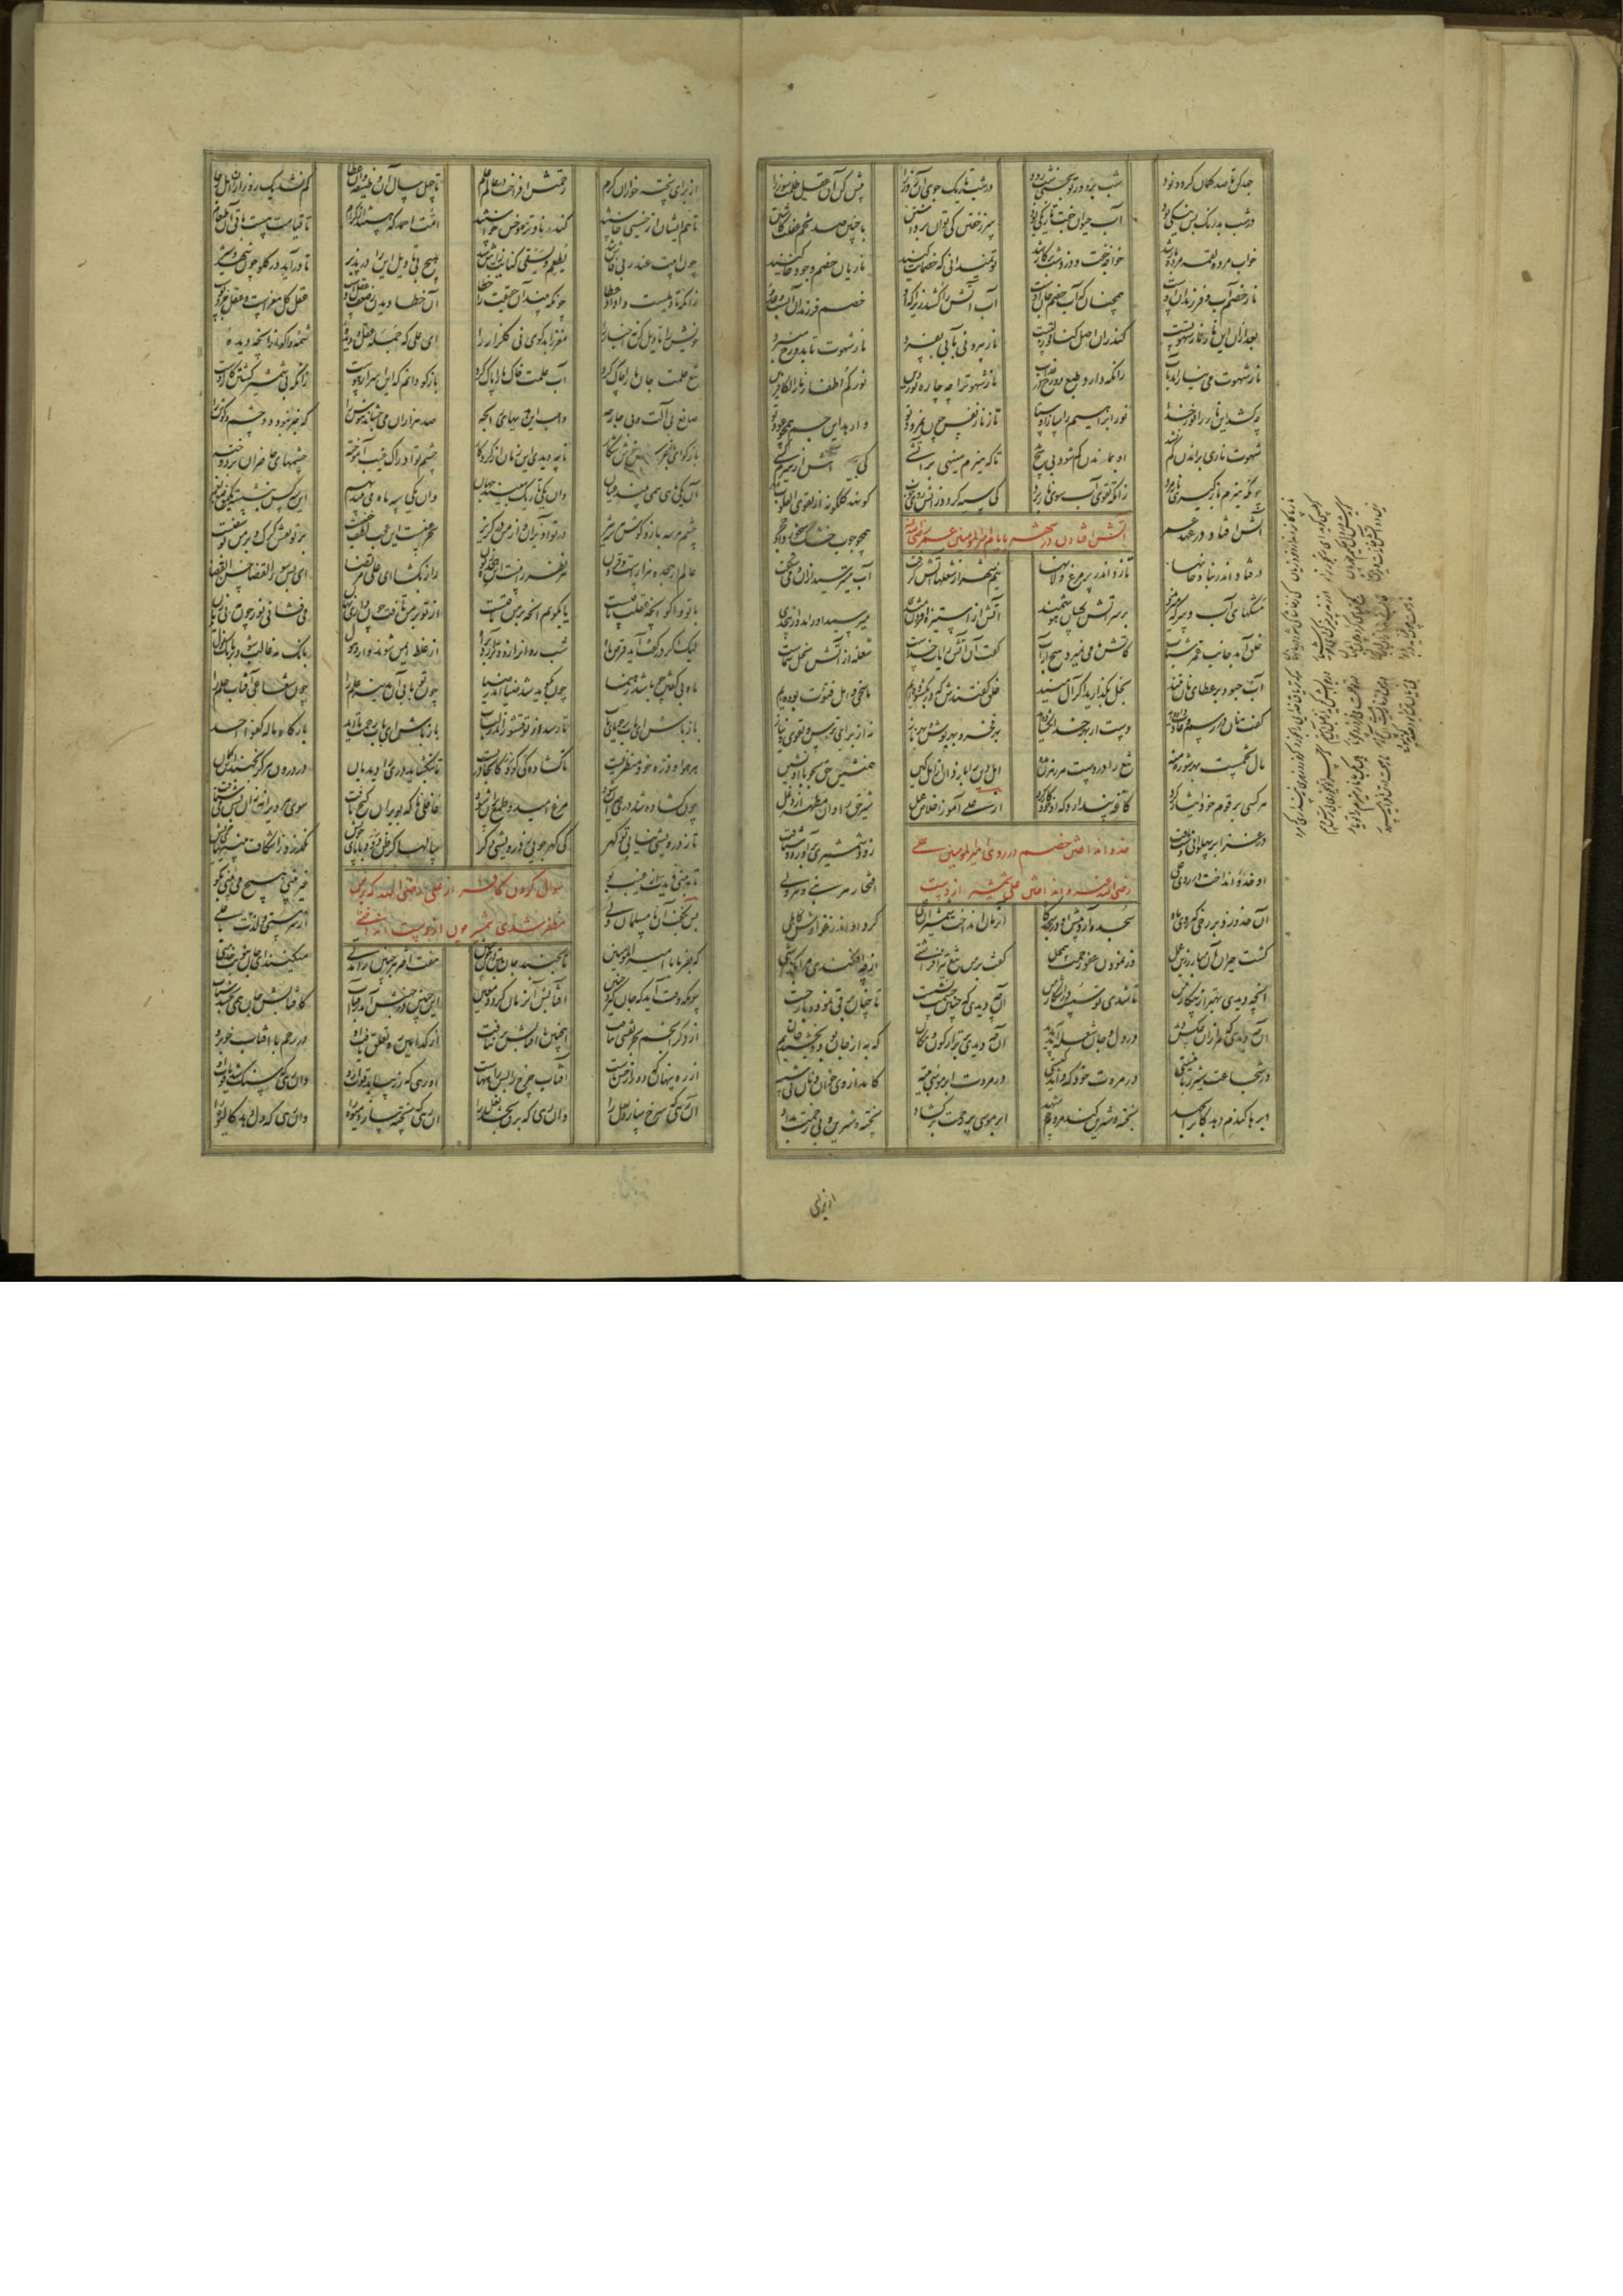 جهد کن تا صد گمان گردد نود شب برو ور تو بخسپی شب رود در شب تاریک جوی آن روز را پیش کن آن عقل ظلمت سوز را
در شب بد رنگ بس نیکی بود آب حیوان جفت تاریکی بود سر ز خفتن کی توان برداشتن با چنین صد تخم غفلت کاشتن
خواب مرده لقمه مرده یار شد خواجه خفت و دزد شب بر کار شد تو نمیدانی که خصمانت کیند ناریان خصم وجود خاکیند
نار خصم آب و فرزندان اوست همچنان که آب خصم جان اوست آب آتش را کشد زیرا که او خصم فرزندان آبست و عدو
بعد ازان این نار نار شهوتست کندران اصل گناه و زلتست نار بیرونی بآبی بفسرد نار شهوت تا بدوزخ میبرد
نار شهوت می نیارامد بآب زانکه دارد طبع دوزخ در عذاب نار شهوت را چه چاره نور دین نورکم اطفاء نار الکافرین
چه کشد این نار را نور خدا نور ابراهیم را ساز اوستا تا ز نار نفس چون نمرود تو وا رهد این جسم همچون عود تو
شهوت ناری براندن کم نشد او بماندن کم شود بی هیچ تا که هیزم مینهی بر آتشی کی آتش از هیزم کشی
چونکه هیزم باز گیری نار مرد زانکه تقوی آب سوی نار برد کی سیه گردد ز آتش روی خوب کو نهد گلگونه از تقوی القلوب
آتش افتادن در شهر بایام امیرالمومنین عمر رضی الله عنه
آتشی افتاد در عهد عمر همچو چوب خشک میخورد او حجر
در فتاد اندر بنا و خانها تا زد اندر پر مرغ و لانها نیم شهر از شعلها آتش گرفت آب میترسید ازان و می شگفت
مشکهای آب و سرکه میزدند بر سر آتش کسان هوشمند آتش از استیزه افزون میشدی میرسید او را مدد از بیحدی
خلق آمد جانب عمر شتاب کاتش ما می نمیرد هیچ از آب گفت آن آتش ز آیات خداست شعله از آتش بخل شماست
آب چبود بر عطای نان تنید بخل بگذارید اگر آل منید خلق گفتندش که در بگشوده ایم ما سخی و اهل فتوت بوده ایم
گفت نان در رسم و عادت داده اید دست از بهر خدا نگشاده اید بهر فخر و بهر بوش و بهر ناز نه از برای ترس و تقوی و نیاز
مال تخمست بهر شوره منه تیغ را در دست هر رهزن مده اهل دین را باز دان از اهل کین همنشین حق بجو با او نشین
هر کسی بر قوم خود ایثار کرد کاغه پندارد که او خود کار کرد از علی آموز اخلاص عمل شیر حق را دان مطهر از دغل
در غزا بر پهلوانی دست یافت زود شمشیری برآورد و شتافت
خدو انداختن خصم در روی امیرالمومنین علی
او خدو انداخت بر روی علی افتخار هر نبی و هر ولی
رضی الله عنه و انداختن علی شمشیر از دست
آن خدو زد بر رخی که روی ماه سجده آرد پیش او در سجده گاه در زمان انداخت شمشیر آن علی کرد او اندر غزایش کاهلی
گشت حیران آن مبارز زین عمل وز نمودن عفو و رحمت بیمحل گفت بر من تیغ تیز افراشتی از چه افکندی مرا بگذاشتی
آنچه دیدی بهتر از پیکار من تا شدی تو سست در اشکار من آن چه دیدی که چنین خشمت نشست تا چنان برقی نمود و باز جست
آن چه دیدی که مرا زان عکس دید در دل و جان شعله آمد پدید آن چه دیدی برتر از کون و مکان که به از جان بود و بخشیدیم جان
در شجاعت شیر ربانیستی در مروت خود که داند کیستی در مروت ابر موسی بتیه کامد از وی خوان و نان بی شبیه
ابرها گندم دهد کانرا بجهد پخته و شیرین کند مردم چو شهد ابر موسی پر رحمت بر گشاد پخته و شیرین بی زحمت بداد
از برای
از برای پخته خواران کرم رحمتش افراخت در عالم علم تا چهل سال آن وظیفه وان عطا کم نشد یک روز ازان اهل رجا
تا هم ایشان از خسیسی خاستند گندنا و تره و خس خواستند امت احمد که هستند از کرام تا قیامت هست باقی آن طعام
چون ابیت عند ربی فاش شد یطعم و یسقی کنایت ز آش شد هیچ بی تاویل این را در پذیر تا در آید در گلو چون شهد و شیر
زانکه تاویلست وا داد عطا چونکه بیند آن حقیقت را خطا آن خطا دیدن ز ضعف عقل اوست عقل کل مغزست و عقل جزو پوست
خویش را تاویل کن نه اخبار را مغز را بد گوی نی گلزار را ای علی که جمله عقل و دیده شمه وا گو از آنچه دیده
تیغ حلمت جان ما را چاک کرد آب علمت خاک ما را پاک کرد باز گو دانم که این اسرار هوست زانکه بی شمشیر کشتن کار اوست
صانع بی آلت و بی جارحه واهب این هدیهای رابحه صد هزاران می چشاند هوش را که خبر نبود دو چشم و گوش را
باز گو ای باز خوش شکار تا چه دیدی این زمان از کردگار چشم تو ادراک غیب آموخته چشمهای حاضران بر دوخته
آن یکی ماهی همی بیند عیان وان یکی تاریک میبیند جهان وان یکی سه ماه می بیند بهم این سه کس بنشسته یک موضع نعم
چشم هر سه باز و گوش هر سه تیز در تو آویزان و از من در گریز سحر عینست این عجب لطف خفیست بر تو نقش گرگ و بر من یوسفیست
عالم ار هجده هزارست و فزون هر نظر را نیست این هجده زبون راز بگشا ای علی مرتضی ای پس سوء القضا حسن القضا
یا تو وا گو آنچه عقلت یافتست یا بگویم آنچه بر من تافتست از تو بر من تافت چون داری نهان می فشانی نور چون مه بی زبان
لیک اگر در گفت آید قرص ماه شب روان را زودتر آرد براه از غلط ایمن شوند و از ذهول بانگ مه غالب شود بر بانگ غول
ماه بی گفتن چو باشد رهنما چون بگوید شد ضیا اندر ضیا چون تو بابی آن مدینه علم را چون شعاعی آفتاب حلم را
باز باش ای باب بر جویای باب تا رسد از تو قشور اندر لباب باز باش ای باب رحمت تا ابد بارگاه ماله کفوا احد
هر هوا و ذره خود منظریست ناگشاده کی گود کانجا دریست تا بنگشاید دری را دیدبان در درون هرگز نجنبد این گمان
چون گشاده شد دری حیران شود مرغ امید و طمع پران شود غافلی ناگه بویران گنج یافت سوی هر ویرانه زان پس می شتافت
تا ز درویشی نیابی تو گهر کی گهر جویی ز درویشی دگر سالها گر ظن دود با پای خویش نگذرد ز اشکاف بینیهای خویش
تا ببینی نایدت از غیب بو غیر بینی هیچ می بینی بگو
سوال کردن کافر از علی رضی الله عنه که بر من
مظفر شدی شمشیر چون از دست انداختی
پس بگفت آن نو مسلمان ولی از سر مستی و لذت با علی
که بفرما یا امیرالمومنین تا بجنبد جان بتن در چون جنین هفت اختر هر جنین را مدتی میکنند ای جان بنوبت خدمتی
چونکه وقت آید که جان گیرد جنین آفتابش آن زمان گردد معین این جنین در جنبش آید ز آفتاب کافتابش جان همی بخشد شتاب
از دگر انجم بجز نقشی نیافت این جنین تا آفتابش بر نتافت از کدامین ره تعلق یافت او در رحم با آفتاب خوبرو
از ره پنهان که دور از حس ماست آفتاب چرخ را بس راههاست آن رهی که زر بیابد قوت ازو وان رهی که سنگ شد یاقوت ازو
آن رهی که سرخ سازد لعل را وان رهی که برق بخشد نعل را آن رهی که پخته سازد میوه را وان رهی که دل دهد کالیوه را